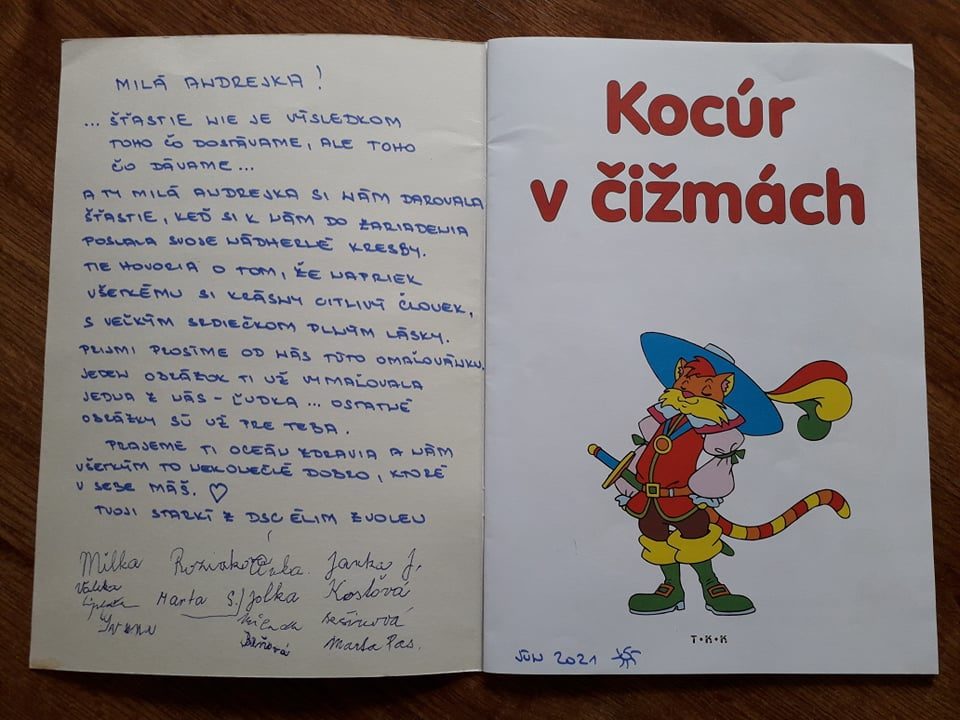 MILÁ ANDREJKA!
... ŠŤASTIE NIE JE VÝSLEDKOM
TOHO ČO DOSTÁVAME, ALE TOHO
ČO DÁVAME...
A TY MILÁ ANDREJKA SI NÁM DAROVALA
ŠŤASTIE, KEĎ SI K NÁM DO ZARIADENIA
POSLALA SVOJE NÁDHERNÉ KRESBY.
TIE HOVORIA O TOM, ŽE NAPRIEK
VŠETKÉMU SI KRÁSNY CITLIVÝ ČLOVEK,
S VEĽKÝM SRDIEČKOM PLNÝM LÁSKY.
PRIJMI PROSÍME OD NÁS TÚTO OMAĽOVÁNKU.
JEDEN OBRÁZOK TI UŽ VYMAĽOVALA
JEDNA Z NÁS - ĽUDKA... OSTATNÉ
OBRÁZKY SÚ UŽ PRE TEBA.
PRAJEME TI OCEÁN ZDRAVIA A NÁM
VŠETKÝM TO NEKONEČNÉ DOBRO, KTORÉ
V SEBE MÁŠ. ♡
TVOJI STARKÍ Z DSC ÉLIM ZVOLEN
Milka Janka J.
Marta S. Jolka Kostová
Marta Pas.
Kocúr
v čižmách
T•K•K
JÚN 2021